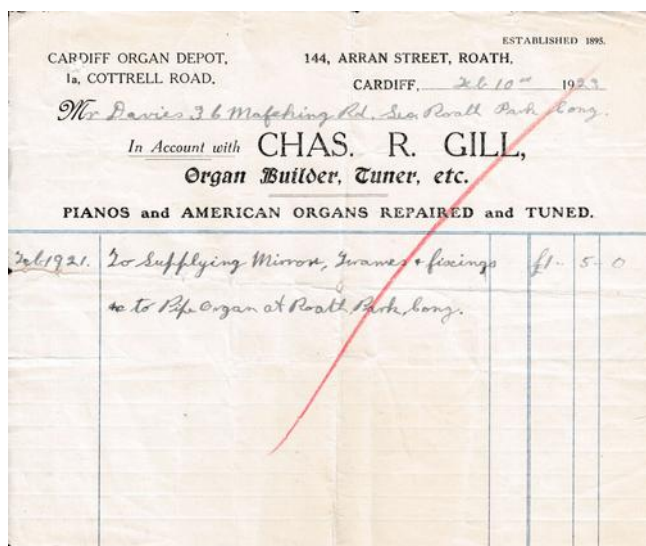 ESTABLISHED 1895.
CARDIFF ORGAN DEPOT,
1a, COTTRELL ROAD.
144, ARRAN STREET, ROATH,
CARDIFF, Feb 10th 1923
Mr Davies 36 Mafeking Rd. Sec. Roath Park Cong.
In Account with CHAS. R. GILL,
Organ Builder, Tuner, etc.
PIANOS and AMERICAN ORGANS REPAIRED and TUNED.
Feb 1921. To Supplying Mirror, Frames + fixings £1 - 5 - 0
to Pipe Organ at Roath Park, Cong.